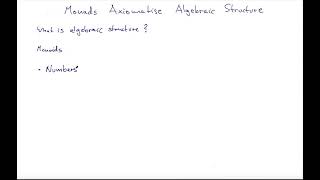 Monads Axiomatise Algebraic Structure
What is algebraic structure?
Monoids
• Numbers